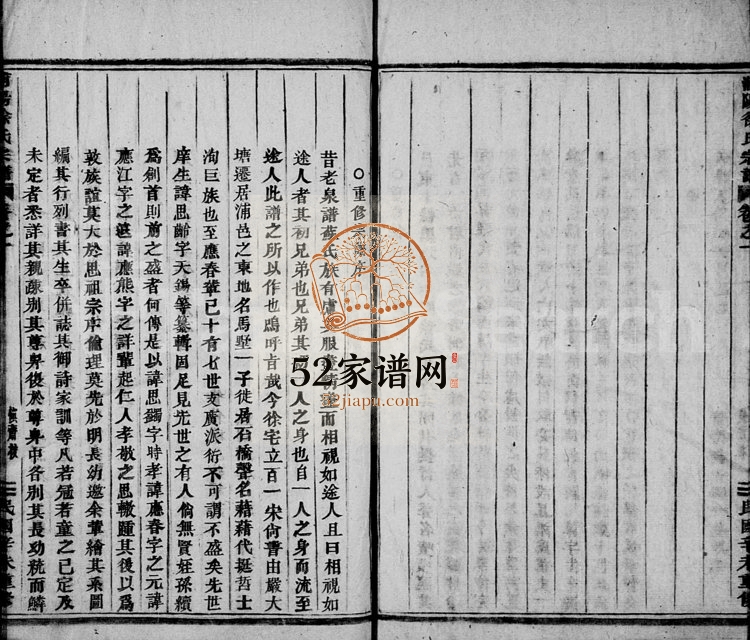 ○重修
昔老泉譜蘇氏族有慮其服而相視如途人且曰相視如
途人者其初兄弟也兄弟其初一人之身也自一人之身而流至
途人此譜之所以作也嗚呼旨哉今徐宅立百一宋尙書由嚴大
塘遷居浦邑之東地名馬墅一子徙居石橋聲名藉藉代挺哲士
洵巨族也至應春輩已十有七世支廣派衍不可謂不盛矣先世
庠生諱思齡字天錫等纂輯固足見先世之有人倘無賢姪孫續
爲創首則前之盛者何傳是以諱思鐲字時孝諱應春字之元諱
應江字之諱應熊字之詳輩起仁人孝敬之思轍踵其後以爲
敦族誼莫大於思祖宗序倫理莫先於明長幼邀余輩繪其系圖
編其行列書其生卒併誌其御詩家訓等凡若冠若童之已定及
未定者悉詳其親疎別其尊卑後於尊卑中各別其長幼統而鱗
民國辛未重修
52家谱网
52jiapu.com